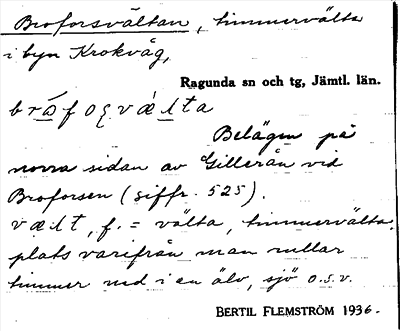 Broforsvältan, timmervälta
i byn Krokvåg,
Ragunda sn och tg, Jämtl. län.
Belägen på
norra sidan av Gillerån vid
Broforsen (siffr. 525).
f. = välta, timmervälta,
plats varifrån man rullar
timmer ned i en älv, sjö o.s.v.
BERTIL FLEMSTRÖM 1936.